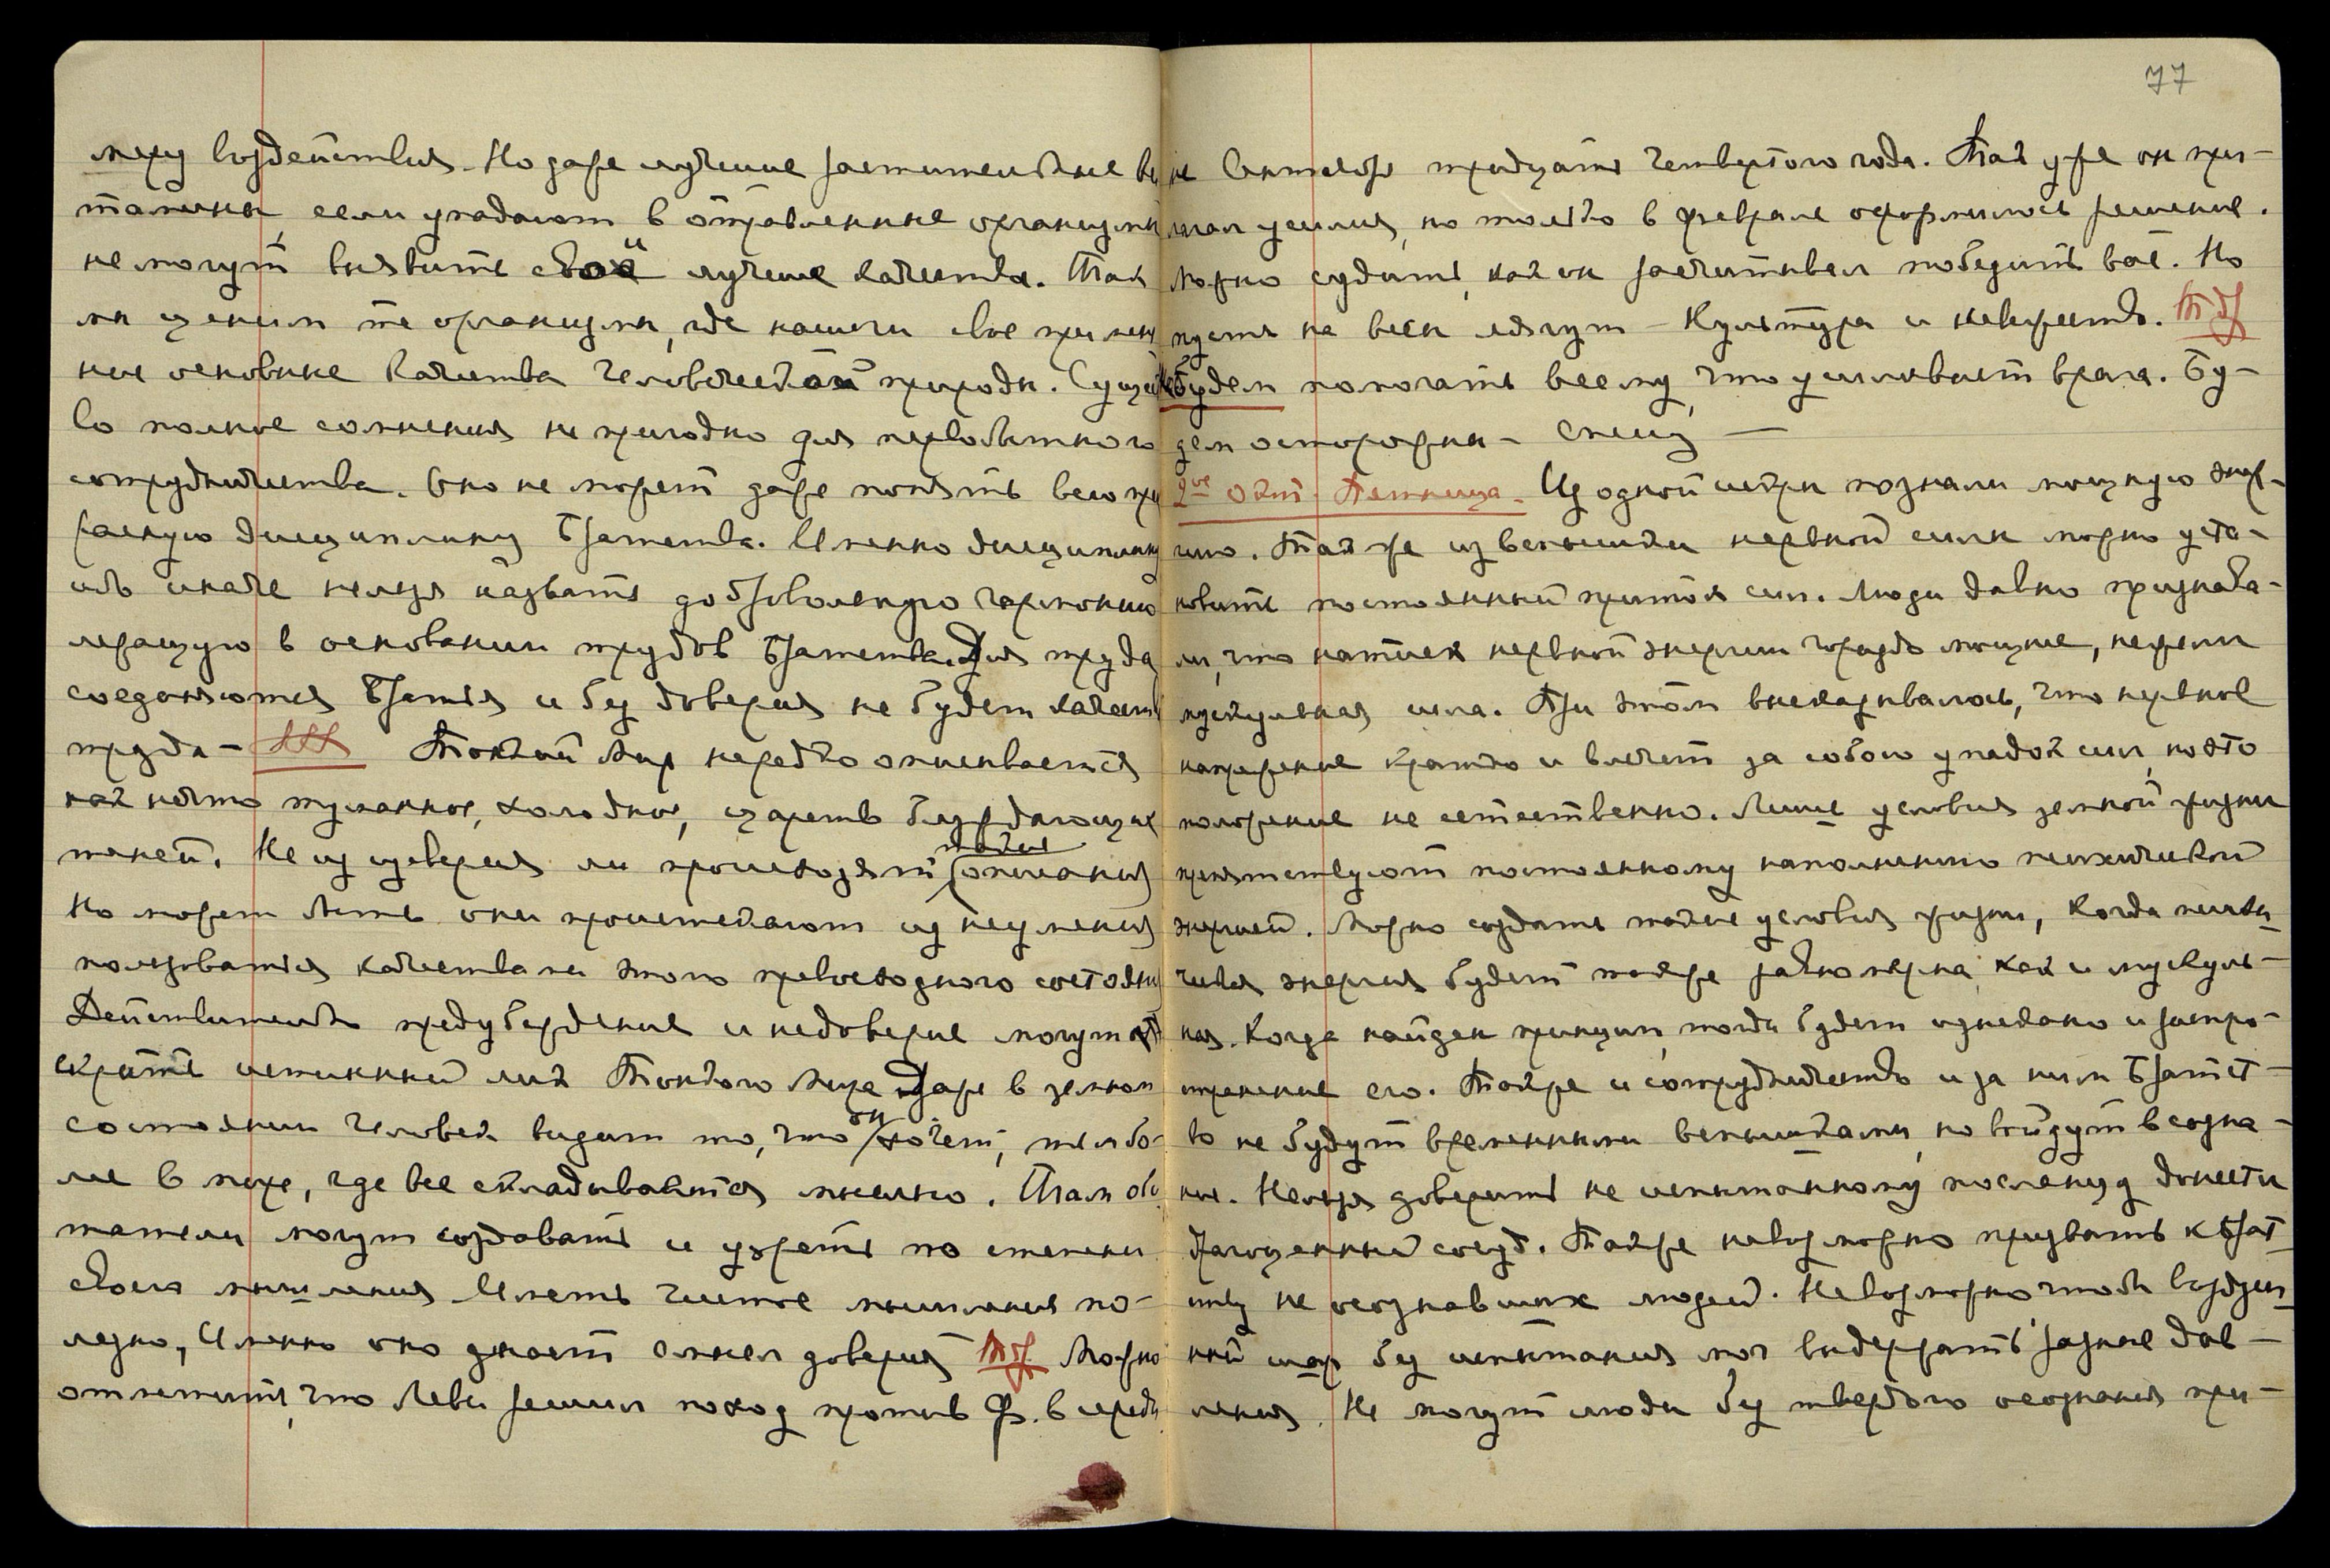 меру воздействия. Но даже лучшие растительные ви
тамины, если упадают в отравленные организмы
не могут выявить свои лучшие качества. Так
мы ценим те организмы, где нашли свое примене
ние основные качества человеческой природы. Сущест
во полное сомнения не пригодно для первобытного
сотрудничества. Оно не может даже понять всю пре
красную дисциплину Братства. Именно дисциплину
ибо иначе нельзя назвать добровольную гармонию
лежащую в основании трудов Братства. Для труда
соединяются Братья и без доверия не будет качеств
труда –
Тонкий Мир нередко описывается
как нечто туманное, холодное, царств блуждающих
теней. Не из суеверия ли происходят такие описания
Но может быть они проистекают из неумения
пользоваться качествами этого превосходного состояни
Действительно предубеждение и недоверие могут от
скрыть истинный лик Тонкого Мира Даже в земном
состоянии человек видит то, что он хочет, тем бо-
лее в мире, где все складывается мыслью. Там оби
татели могут создавать и узреть по степени
своего мышления Иметь чистое мышление по-
лезно, Именно оно дает смысл доверия Тбр. Можно
отметить, что Леви решил поход против Ф. в середи
77
не Сентября тридцать четвертого года. Так уже он при-
лагал усилия, но только в феврале оформилось решение.
Можно судить, как он рассчитывал победить вас. Но
пусть на весы лягут – Культура и невежество. Тбр
будем помогать всему, что усиливает врага. Бу-
дем осторожны – Спешу –
2ое Окт. Пятница. Из одной искры познали мощную энер-
гию. Также из вспышки нервной силы можно уста-
новить постоянный приток сил. Люди давно признава-
ли, что натиск нервной энергии гораздо мощнее, нежели
мускульная сила. При этом высказывалось, что нервное
напряжение кратко и влечет за собою упадок сил, но это
положение не естественно. Лишь условия земной жизни
препятствуют постоянному наполнению психической
энергией. Можно создать такие условия жизни, когда психи
ческая энергия будет также равномерна, как и мускуль-
ная. Когда найден принцип, тогда будет изыскано и распро-
странение его. Также и сотрудничество и за ним Братст-
во не будут временными вспышками, но войдут в созна-
ние. Нельзя доверить не испытанному посланцу донести
драгоценный сосуд. Также невозможно призвать к Брат
ству не осознавших людей. Невозможно чтобы воздуш
ный шар без испытания мог выдержать разное дав-
ление. Не могут люди без твердого осознания при-